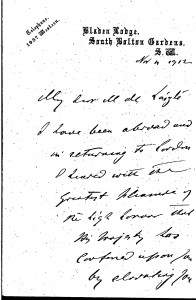 Telephone,
1057 Western.
Bladen Lodge,
South Bolton Gardens,
S.W.
Nov 4 1912
My dear M de
I have been abroad and
on returning to London
I heard with the
greatest pleasure of
the high honour that
His Majesty has
conferred upon you
by elevating you